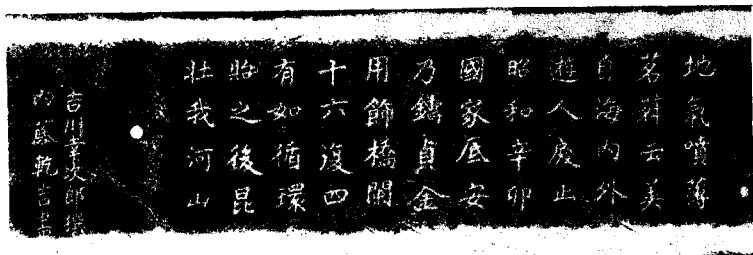 地氣噴薄
茗云美
自海内外
遊人戾止
昭和辛卯
國家底安
乃鑄貞金
用飾橋闌
十六復四
有如循環
貽之後昆
壯我河山
吉川幸次郎撰
内藤乾吉書